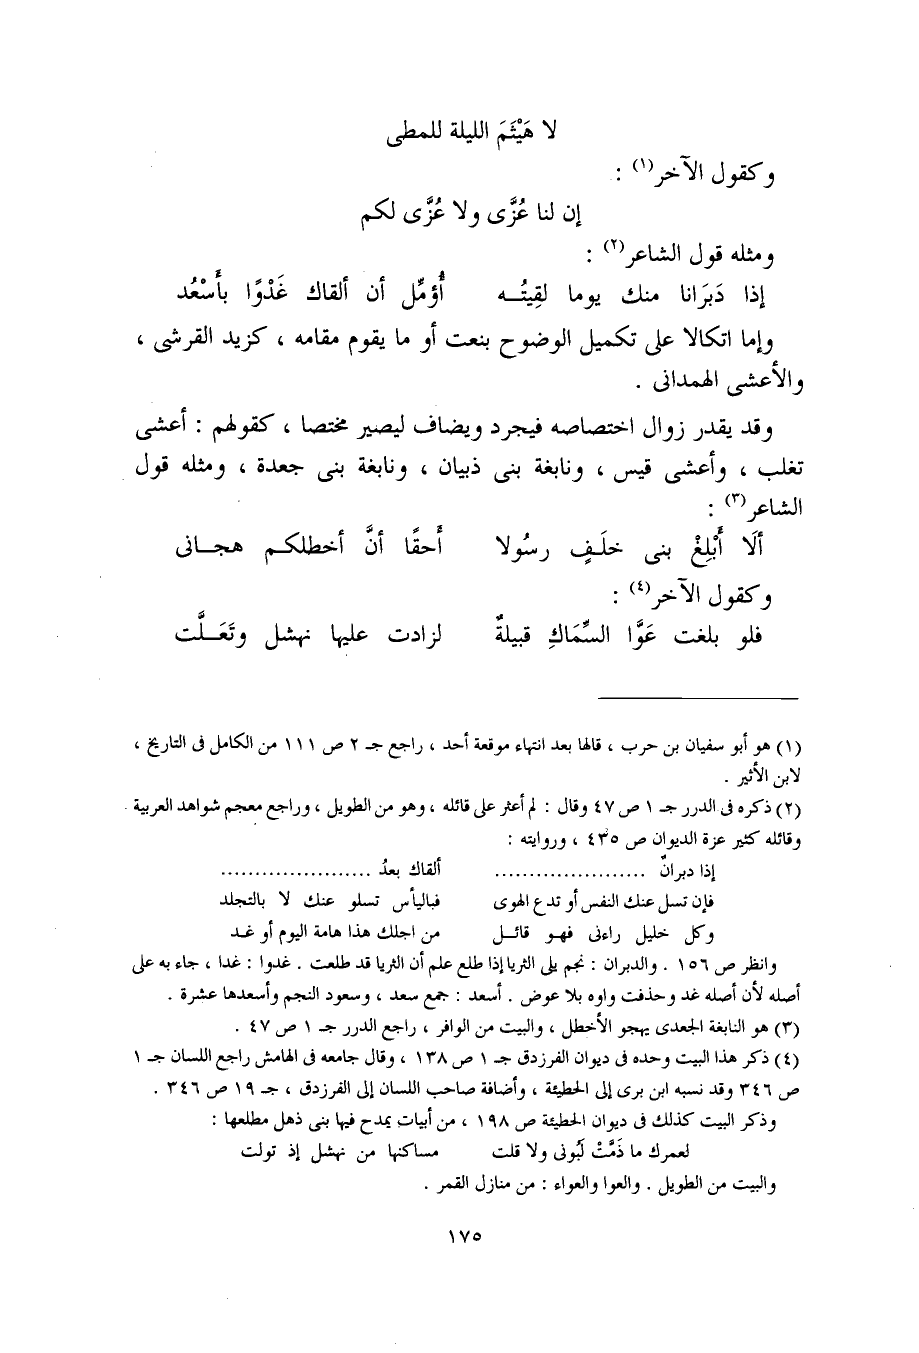 لا هَيْثَمَ الليلة للمطى
وكقول الآخر(١) :
إن لنا عُزَّى ولا عُزَّى لكم
ومثله قول الشاعر(٢) :
إذا دَبَرَانا منك يوما لقِيتُــه أُؤمِّل أن ألقاك غَدْوًا بأَسْعُد
وإما اتكالا على تكميل الوضوح بنعت أو ما يقوم مقامه ، كزيد القرشى ،
والأعشى الهمدانى .
وقد يقدر زوال اختصاصه فيجرد ويضاف ليصير مختصا ، كقولهم : أعشى
تغلب ، وأعشى قيس ، ونابغة بنى ذبيان ، ونابغة بنى جعدة ، ومثله قول
الشاعر(٣) :
ألَا أَبْلِغْ بنى خلَفٍ رسُولا أَحقًا أنَّ أخطلكم هجــانى
وكقول الآخر(٤) :
فلو بلغت عَوَّا السِّمَاكِ قبيلةٌ لزادت عليها نهشل وتَعَــلَّت
(١) هو أبو سفيان بن حرب ، قالها بعد انتهاء موقعة أحد ، راجع جـ ٢ ص ١١١ من الكامل فى التاريخ ،
لابن الأثير .
(٢) ذكره فى الدرر جـ ١ ص ٤٧ وقال : لم أعثر على قائله ، وهو من الطويل ، وراجع معجم شواهد العربية .
وقائله كثير عزة الديوان ص ٤٣٥ ، وروايته :
إذا دبرانٌ ...................... ألقاك بعدُ ......................
فإن تسل عنك النفس أو تدع الهوى فباليأس تسلو عنك لا بالتجلد
وكل خليل راءنى فهـو قائــل من اجلك هذا هامة اليوم أو غـد
وانظر ص ١٥٦ . والدبران : نجم يلى الثريا إذا طلع علم أن الثريا قد طلعت . غدوا : غدا ، جاء به على
أصله لأن أصله غد وحذفت واوه بلا عوض . أسعد : جمع سعد ، وسعود النجم وأسعدها عشرة .
(٣) هو النابغة الجعدى يهجو الأخطل ، والبيت من الوافر ، راجع الدرر جـ ١ ص ٤٧ .
(٤) ذكر هذا البيت وحده فى ديوان الفرزدق جـ ١ ص ١٣٨ ، وقال جامعه فى الهامش راجع اللسان جـ ١
ص ٣٤٦ وقد نسبه ابن برى إلى الحطيئة ، وأضافة صاحب اللسان إلى الفرزدق ، جـ ١٩ ص ٣٤٦ .
وذكر البيت كذلك فى ديوان الحطيئة ص ١٩٨ ، من أبيات يمدح فيها بنى ذهل مطلعها :
لعمرك ما ذَمَّتْ لَبُونى ولا قلت مساكنها من نهشل إذ تولت
والبيت من الطويل . والعوا والعواء : من منازل القمر .
١٧٥